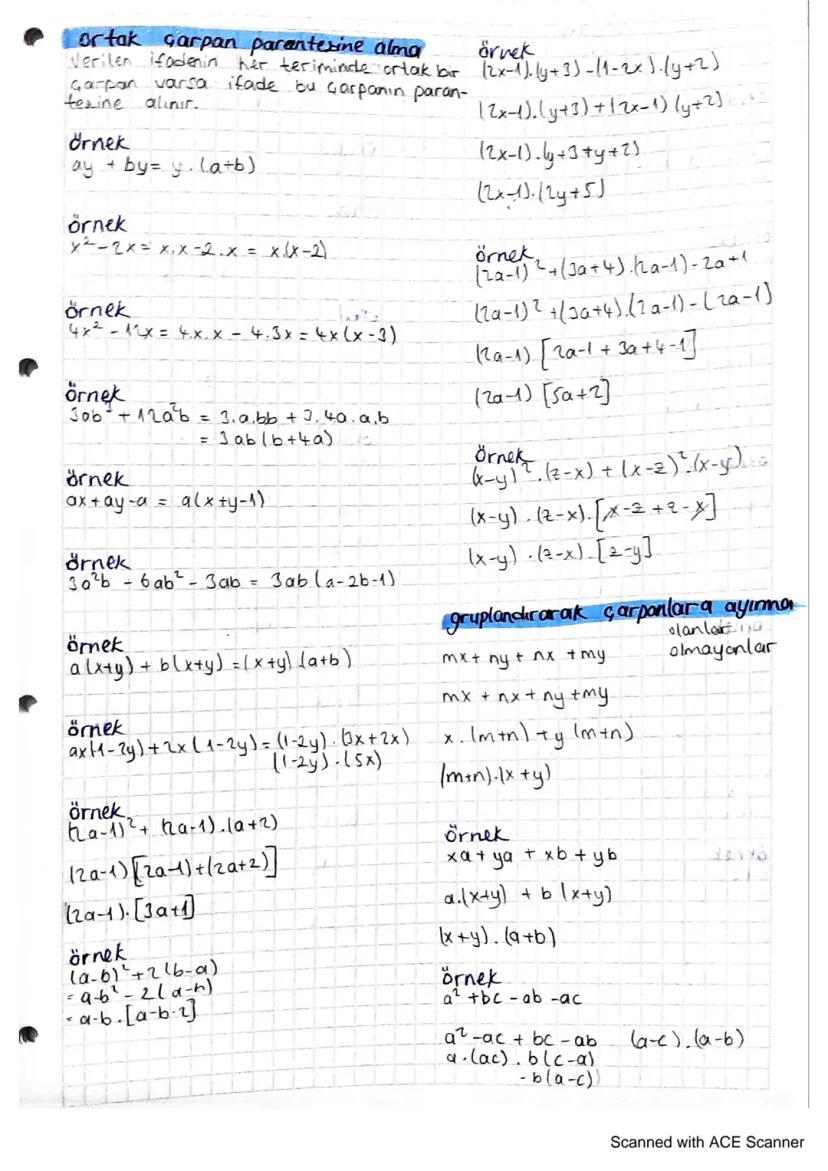 ortak çarpan parantezine alma
Verilen ifadenin her teriminde ortak bir
çarpan varsa ifade bu çarpanın paran-
tezine alınır.
örnek
ay + by = y.(a+b)
örnek
x² - 2x = x.x - 2.x = x(x-2)
örnek
4x² - 12x = 4.x.x - 4.3x = 4x(x-3)
örnek
3ab² + 12a²b = 3.a.bb + 3.4a.a.b
= 3ab(b+4a)
örnek
ax + ay - a = a(x+y-1)
örnek
3a²b - 6ab² - 3ab = 3ab(a-2b-1)
örnek
a(x+y) + b(x+y) = (x+y)(a+b)
örnek
ax(1-2y) + 2x(1-2y) = (1-2y).(3x+2x)
(1-2y).(5x)
örnek
(2a-1)² + (2a-1).(a+2)
(2a-1)[2a-1)+(2a+2)]
(2a-1).[3a+1]
örnek
(a-b)² + 2(b-a)
= a-b² - 2(a-b)
= a-b.[a-b-2]
örnek
(2x-1).(y+3) - (1-2x).(y+2)
(2x-1).(y+3) + (2x-1)(y+2)
(2x-1).(y+3+y+2)
(2x-1).(2y+5)
örnek
(2a-1)² + (3a+4).(2a-1) - 2a+1
(2a-1)² + (3a+4).(2a-1) - (2a-1)
(2a-1)[2a-1+3a+4-1]
(2a-1)[5a+2]
örnek
(x-y)².(z-x) + (x-z)².(x-y)
(x-y).(z-x).[x-z+z-y]
(x-y).(z-x).[z-y]
gruplandırarak çarpanlara ayırma
olanlar
olmayanlar
mx + ny + nx + my
mx + nx + ny + my
x.(m+n) + y(m+n)
(m+n).(x+y)
örnek
xa + ya + xb + yb
a.(x+y) + b(x+y)
(x+y).(a+b)
örnek
a² + bc - ab - ac
a² - ac + bc - ab (a-c).(a-b)
a.(ac).b(c-a)
- b(a-c)
Scanned with ACE Scanner